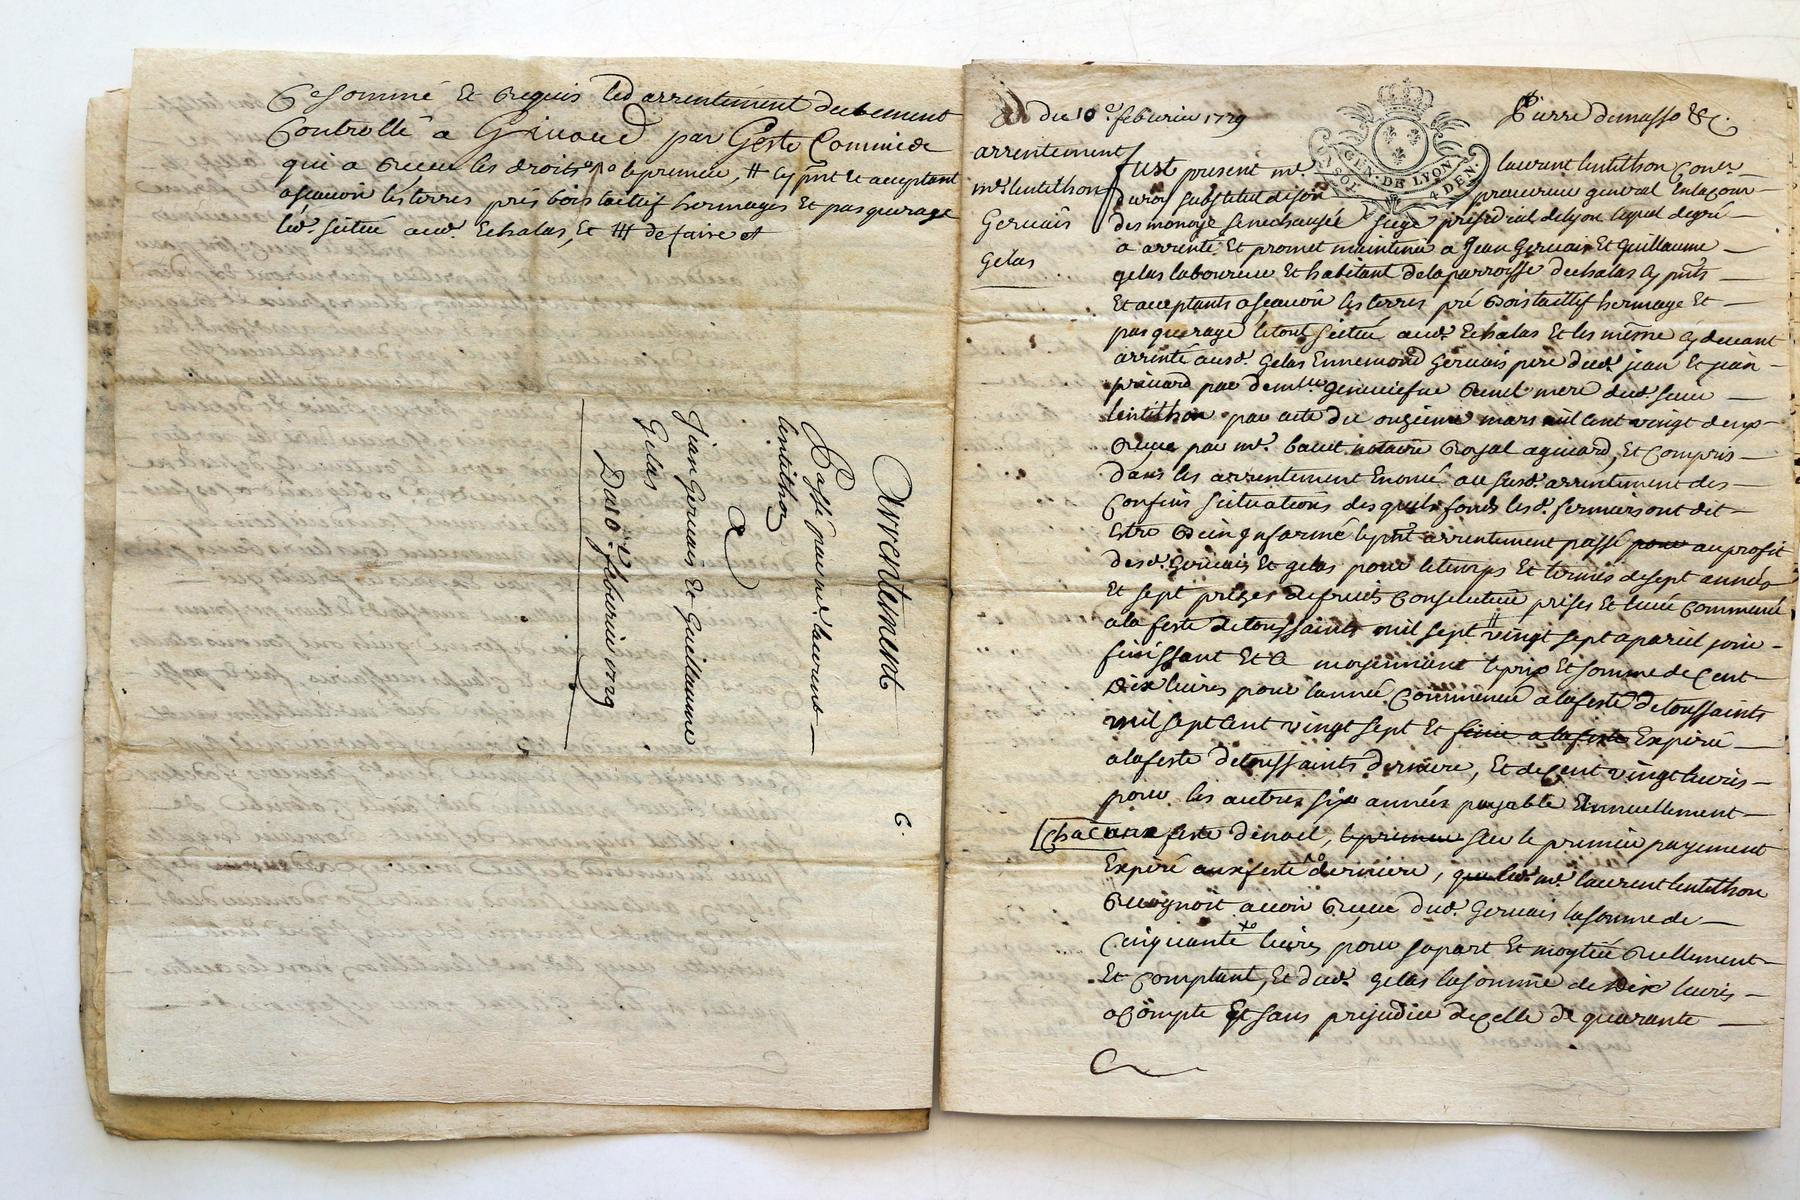 De somme et requis led arrentement deubement
Controllé a Givord par Geste Commis de
qui a receu les droits # cy pnt et acceptant
ascauoir les terres prés bois taillif hermages et pasquerage
led. scitué aud. Echalas, et # de faire et
Arrentement
Passé par me. laurent
lentilhon
A
jean Geruais et Guillaume
Gelas
Du 10e. feburier 1729
6.
du 10e. feburier 1729
Pierre demasso &c.
GEN. DE LYON
UN SOL
4 DEN.
arrentement
mre lentilhon
Geruais
gelas
fust present me. laurent lentilhon Coner.
du roy substitut de son procureur general en la cour
des monoye senechaussée siege presidial de lyon lequel de gré
a arrenté et promet maintenir a jean Geruais et guillaume
gelas laboureur et habitant de la parroisse dechalas cy pnts
et acceptants ascauoir les terres pré bois taillif hermage et
pasquerage le tout scitué aud. Echalas et les mesme cy deuant
arrenté ausd. gelas Ennemond geruais pere dud. jean et jean
priuard par demlle geneuiefue mere dud. sieur
lentilhon par acte du onzieme mars mil cent vingt deux
receu par me. notaire Royal a giuord, et compris
dans les arrentement Enoncé au susd. arrentement des
confins scituations desquels fonds lesd. fermiers ont dit
Estre bien Informé le pnt arrentement passé pour au profit
desd. geruais et gelas pour le temps et termes de sept années
et sept prizes de fruits consecutiue prises et leuée commencé
a la feste de toussaints mil sept vingt sept a pareil jour
finissant et ce moyennant le prix et somme de cent
dix liures pour lannée commencé a la feste de toussaints
mil sept cent vingt sept et finie a la feste Expiré
a la feste de toussaints derniere, et de cent vingt liures
pour les autres six années payable Annuellement
chacune feste de noel, le premier sur le premier payement
Expiré aux feste derniere, que led. me. laurent lentilhon
reconnoit auoir receu dud. geruais la somme de
cinquante liures pour sa part et moytié reellement
et comptant, et dud. gelas la somme de dix liures
a compte et sans prejudice de celle de quarante